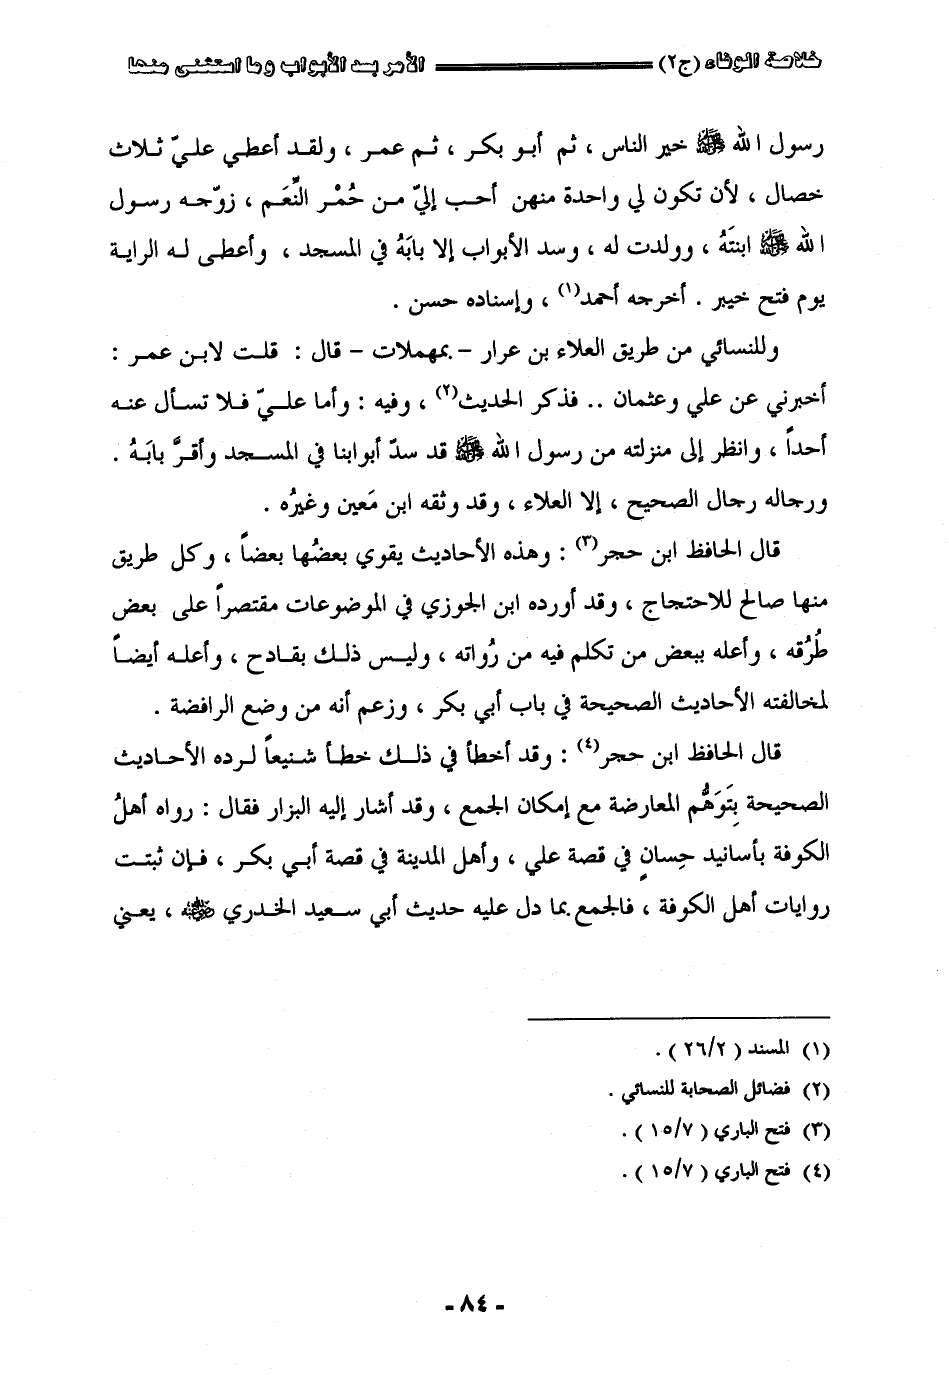 خلاصة الوفاء (ج٢) الأمر بسد الأبواب وما استثني منها
رسول الله ﷺ خير الناس ، ثم أبو بكر ، ثم عمر ، ولقد أعطي عليّ ثلاث
خصال ، لأن تكون لي واحدة منهن أحب إليّ من حُمْر النَّعَم ، زوّجه رسول
الله ﷺ ابنتَهُ ، وولدت له ، وسد الأبواب إلا بابَهُ في المسجد ، وأعطى له الراية
يوم فتح خيبر . أخرجه أحمد(١) ، وإسناده حسن .
وللنسائي من طريق العلاء بن عرار – بمهملات – قال : قلت لابن عمر :
أخبرني عن علي وعثمان .. فذكر الحديث(٢) ، وفيه : وأما عليّ فلا تسأل عنه
أحداً ، وانظر إلى منزلته من رسول الله ﷺ قد سدّ أبوابنا في المسجد وأقرَّ بابَهُ .
ورجاله رجال الصحيح ، إلا العلاء ، وقد وثقه ابن مَعين وغيرُه .
قال الحافظ ابن حجر(٣) : وهذه الأحاديث يقوي بعضُها بعضاً ، وكل طريق
منها صالح للاحتجاج ، وقد أورده ابن الجوزي في الموضوعات مقتصراً على بعض
طُرُقه ، وأعله ببعض من تكلم فيه من رُواته ، وليس ذلك بقادح ، وأعله أيضاً
لمخالفته الأحاديث الصحيحة في باب أبي بكر ، وزعم أنه من وضع الرافضة .
قال الحافظ ابن حجر(٤) : وقد أخطأ في ذلك خطأ شنيعاً لرده الأحاديث
الصحيحة بِتَوَهُّم المعارضة مع إمكان الجمع ، وقد أشار إليه البزار فقال : رواه أهلُ
الكوفة بأسانيد حِسانٍ في قصة علي ، وأهل المدينة في قصة أبي بكر ، فإن ثبتت
روايات أهل الكوفة ، فالجمع بما دل عليه حديث أبي سعيد الخدري ﵁ ، يعني
(١) المسند ( ٢٦/٢ ) .
(٢) فضائل الصحابة للنسائي .
(٣) فتح الباري ( ١٥/٧ ) .
(٤) فتح الباري ( ١٥/٧ ) .
- ٨٤ -